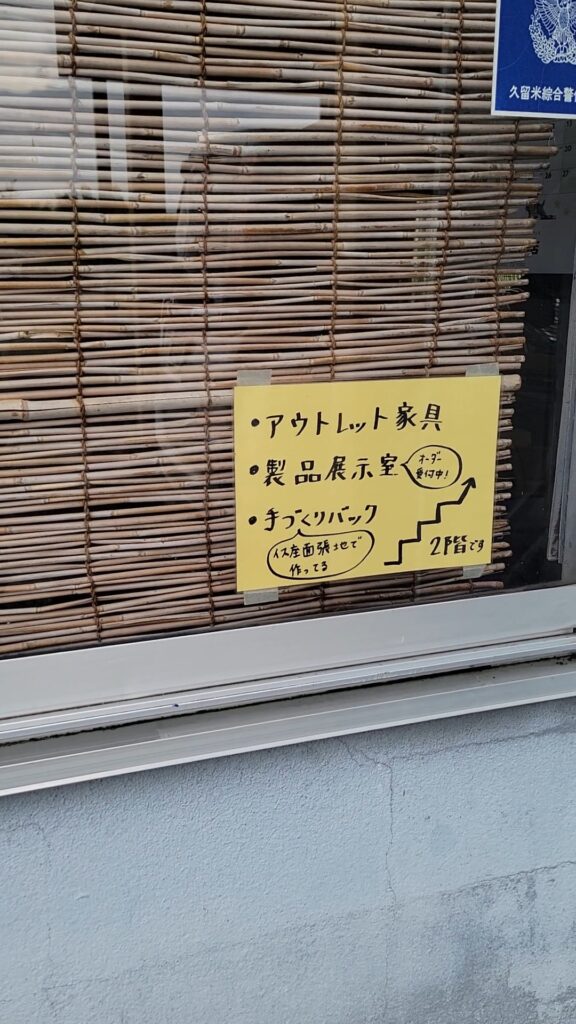 久留米綜合警
・アウトレット家具
・製品展示室
オーダー
受付中!
・手づくりバック
イス座面張地で
作ってる
2階です